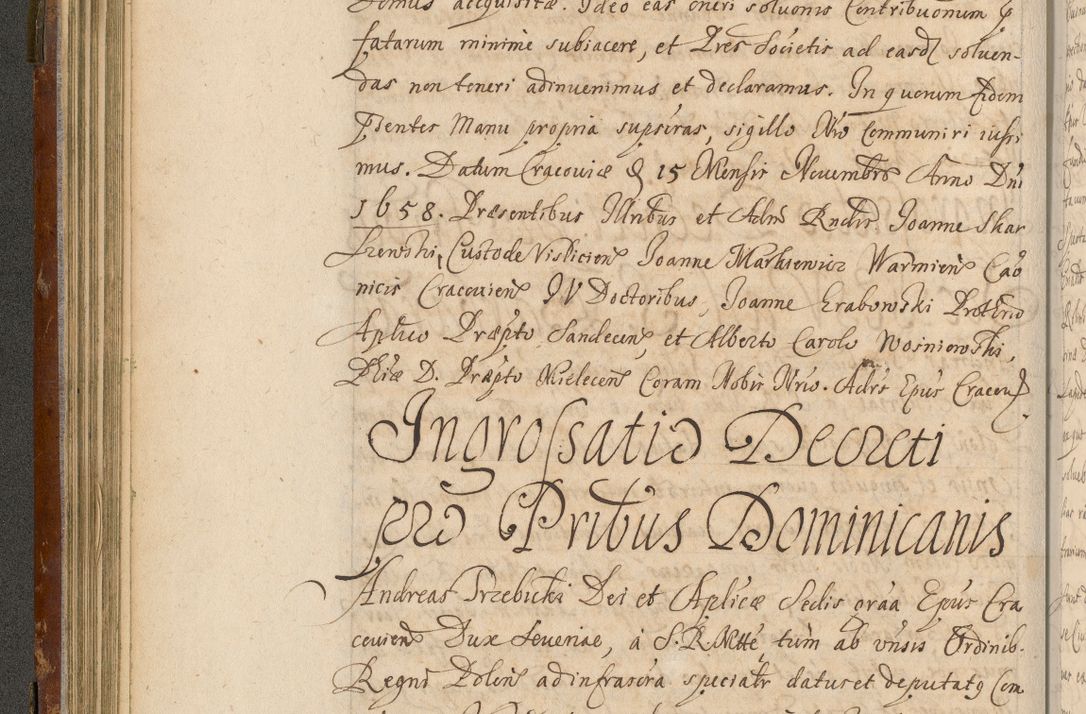 domus accquisitæ. Ideo eas oneri solvonis Contribuonum p
fatarum minime subiacere, et Pres Societis ad easd soluen-
das non teneri adinuenimus et declaramus. In quorum fidem
Pentes Manu propria supscras, sigillo Nro Communiri iussi
mus. Datum Cracouiæ D 15 Mensis Nouembris Anno Dni
1658. Præsentibus Illribus et Adm Rndis Joanne Skar
szewski, Custode Visliciens Joanne Markiewicz Warmiens Cao
nicis Cracouiens IV Doctoribus, Joanne Grabowski Protho
Aplico Præpto Sandecens, et Alberto Carolo Wosniowski,
Pliæ D. Præpto Mielecens Coram Nobis Nrio. Adrs Epus Cracou
Ingrossatio Decreti
pro Pribus Dominicanis
Andreas Trzebicki Dei et Aplicæ Sedis graa Epus Cra
couiens Dux Seueriae, à S. R. Mtte, tum ab vnsis Ordinib.
Regni Polon ad infrascra specialr datus et deputatq Com